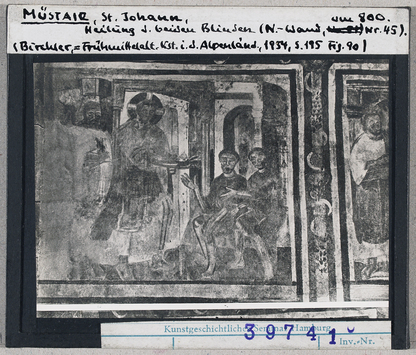 MÜSTAIR, St. Johann, um 800.
Heilung d. beiden Blinden (N.-Wand, Nr. 45).
(Birchler, Frühmittelalt. Kst. i. d. Alpenländ., 1954, S. 195 Fig. 90)
Kunstgeschichtliches Seminar Hamburg
39741
Inv.-Nr.